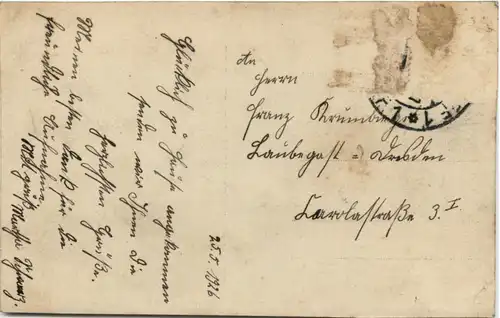 Glücklich zu Hause angekommen
senden wir Ihnen die
herzlichsten Grüße.
Meinen besten Dank für die
freundliche Aufnahme
Mit Gruß
Martha
25.5.1926
An
Herrn
Franz Krumbiegel
Laubegast = Dresden
Carolastraße 3. I